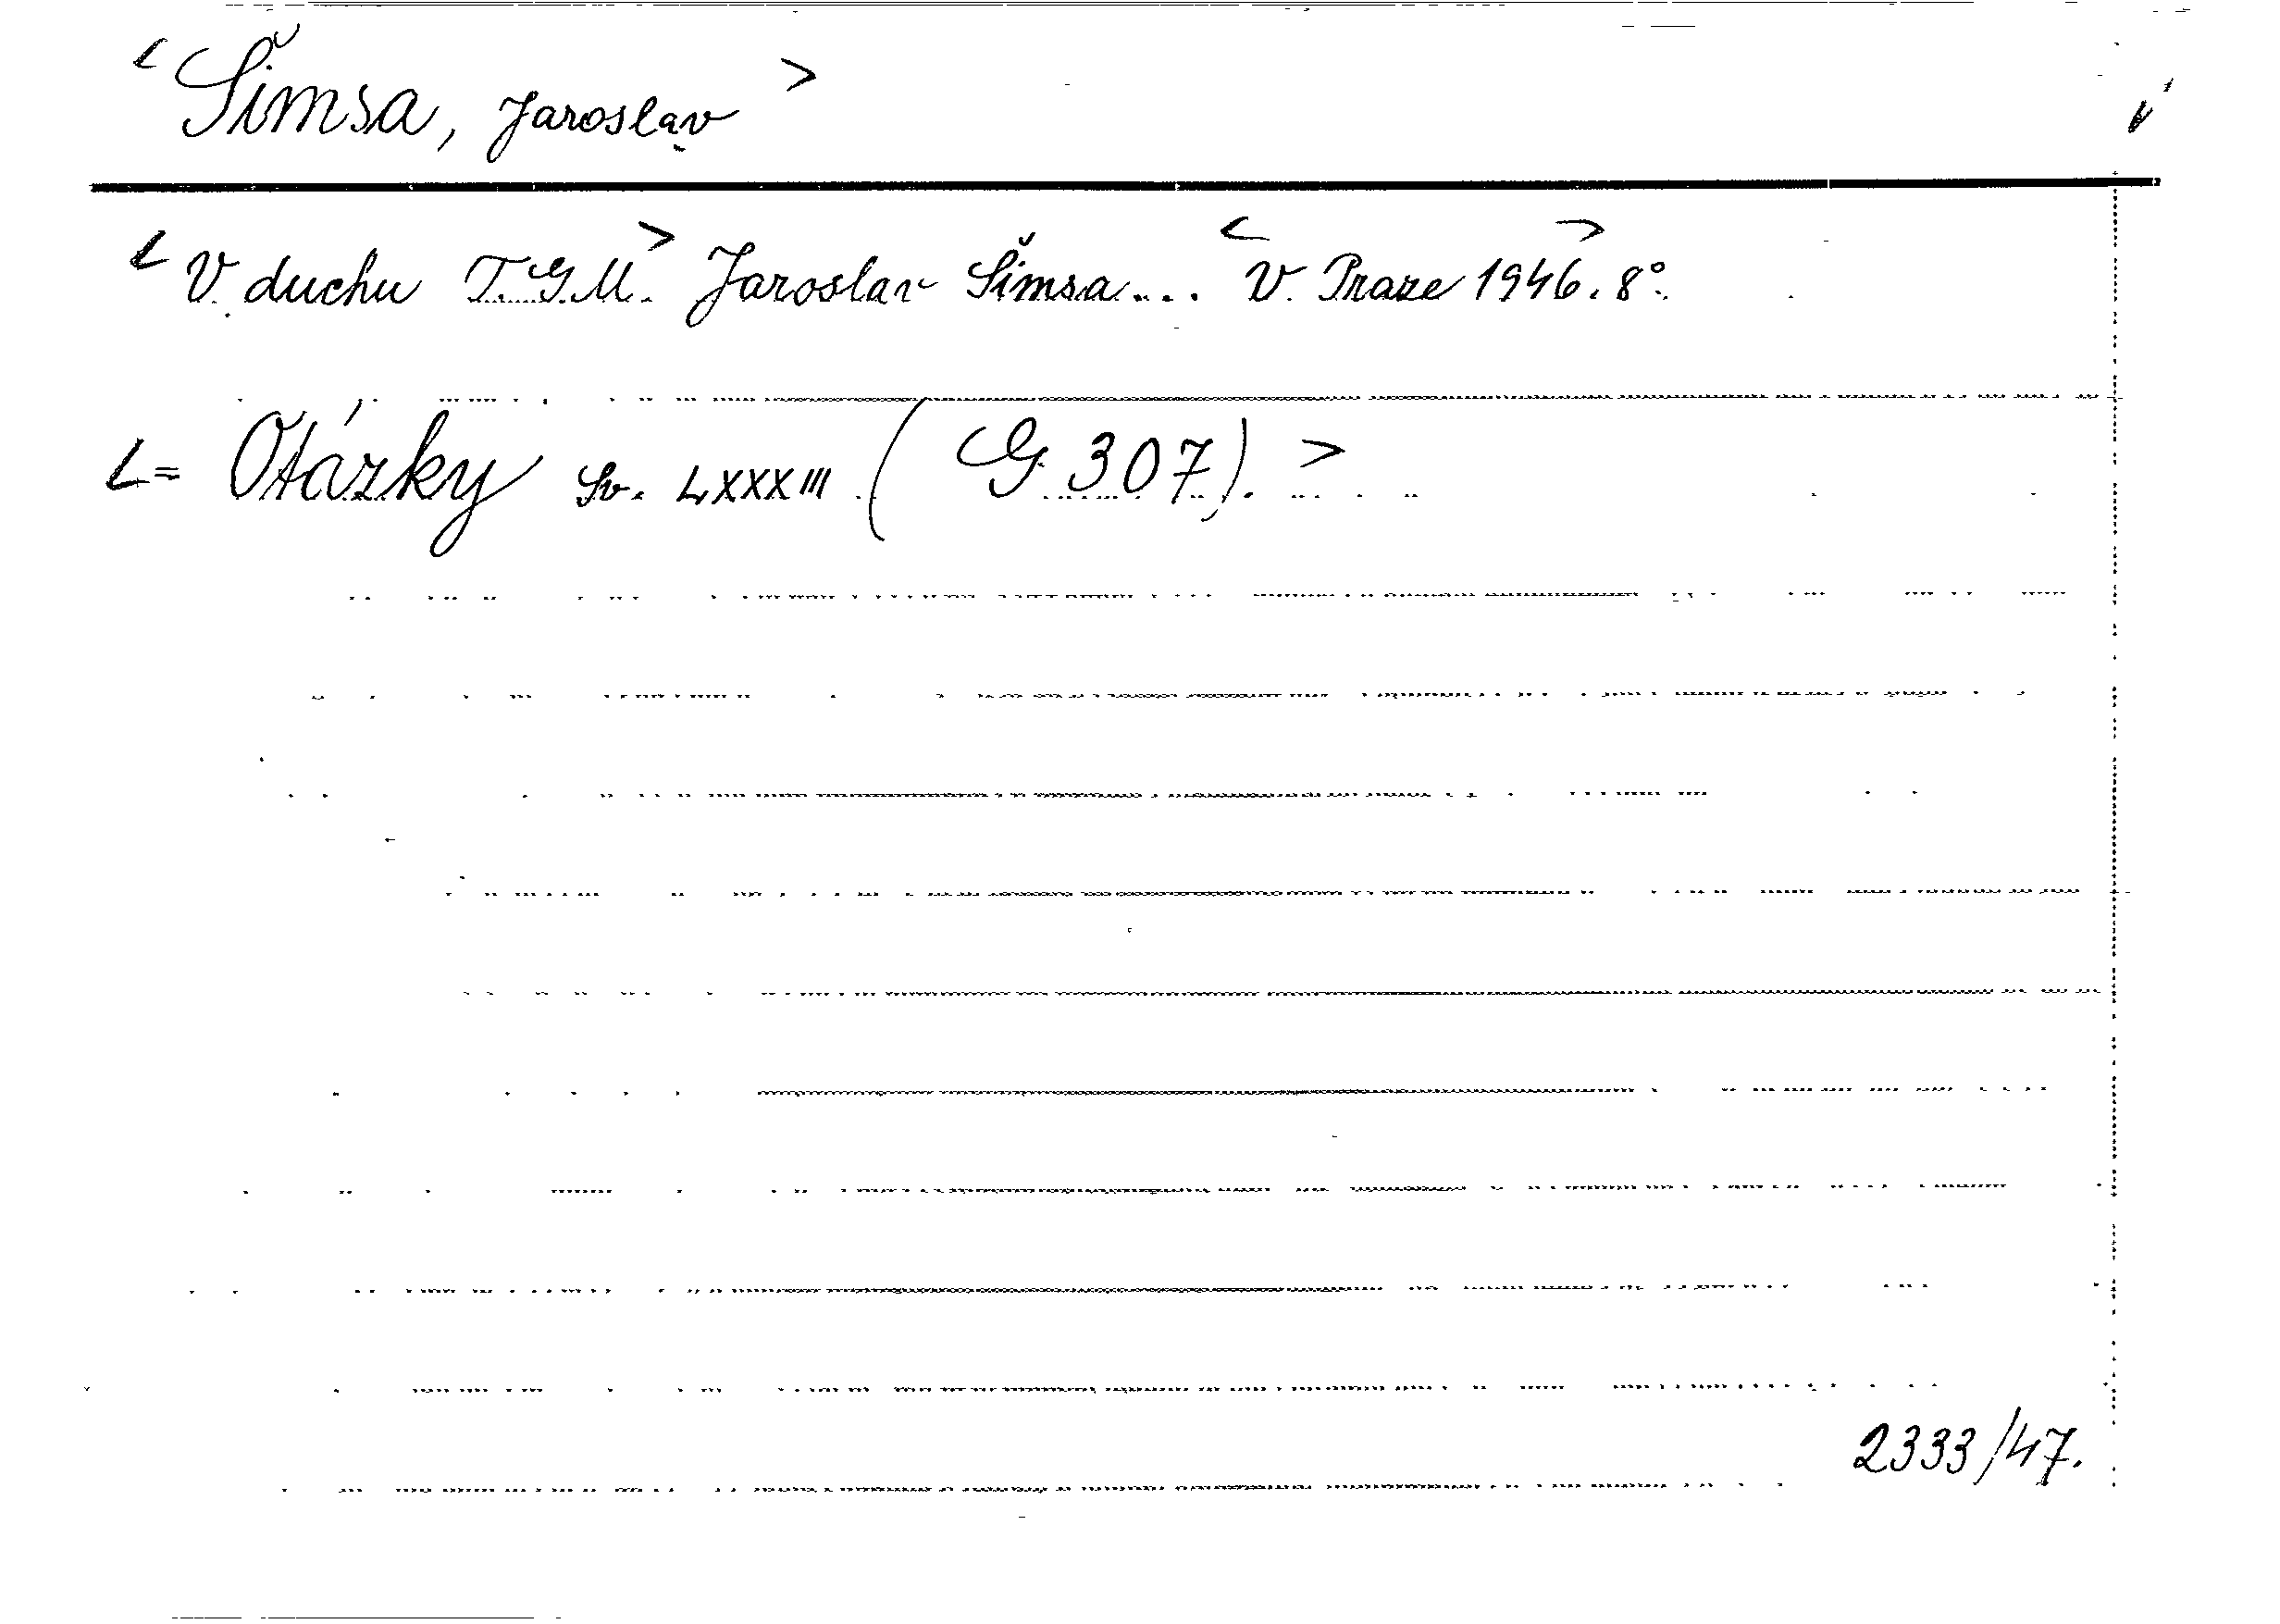 < Šimsa, Jaroslav >
< V duchu T. G. M. > Jaroslav Šimsa... < V Praze 1946. > 8°.
<= Otázky Sv. LXXXIII (G 307). >
2333/47.